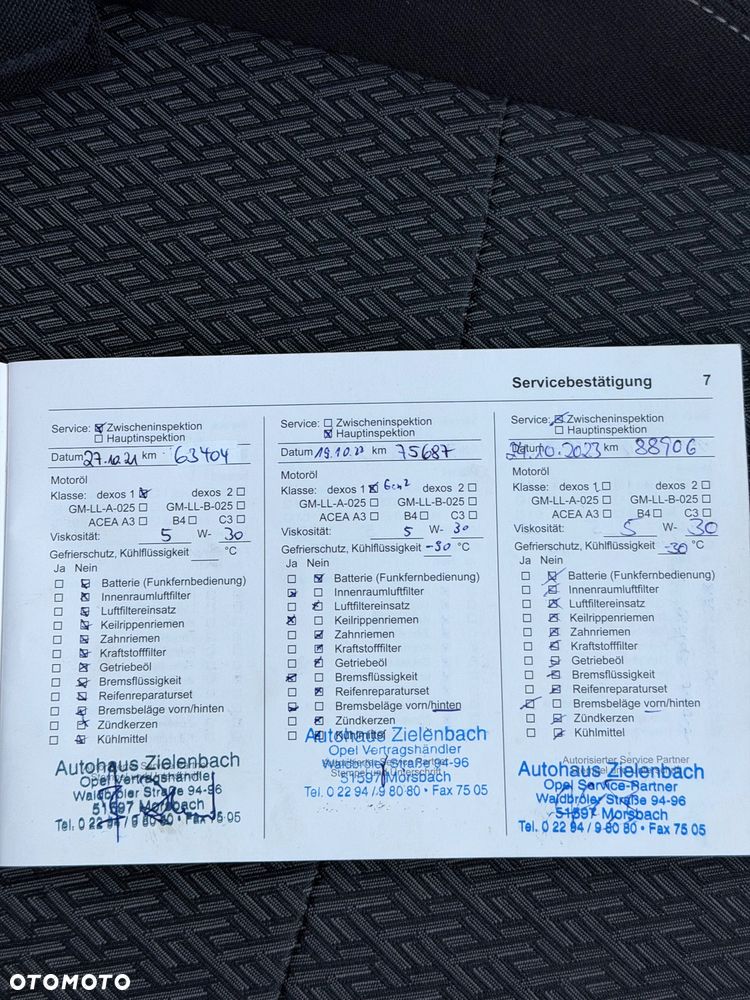 Servicebestätigung 7
Service: Zwischeninspektion
Hauptinspektion
Datum 27.10.21 km 63404
Motoröl
Klasse: dexos 1 dexos 2
GM-LL-A-025 GM-LL-B-025
ACEA A3 B4 C3
Viskosität: 5 W- 30
Gefrierschutz, Kühlflüssigkeit °C
Ja Nein
Batterie (Funkfernbedienung)
Innenraumluftfilter
Luftfiltereinsatz
Keilrippenriemen
Zahnriemen
Kraftstofffilter
Getriebeöl
Bremsflüssigkeit
Reifenreparaturset
Bremsbeläge vorn/hinten
Zündkerzen
Kühlmittel
Autohaus Zielenbach
Opel Vertragshändler
Waldbröler Straße 94-96
51597 Morsbach
Tel. 0 22 94 / 9 80 80 • Fax 75 05
Service: Zwischeninspektion
Hauptinspektion
Datum 19.10.22 km 75687
Motoröl
Klasse: dexos 1 dexos 2
GM-LL-A-025 GM-LL-B-025
ACEA A3 B4 C3
Viskosität: 5 W- 30
Gefrierschutz, Kühlflüssigkeit -30 °C
Ja Nein
Batterie (Funkfernbedienung)
Innenraumluftfilter
Luftfiltereinsatz
Keilrippenriemen
Zahnriemen
Kraftstofffilter
Getriebeöl
Bremsflüssigkeit
Reifenreparaturset
Bremsbeläge vorn/hinten
Zündkerzen
Kühlmittel
Autohaus Zielenbach
Opel Vertragshändler
Waldbröler Straße 94-96
51597 Morsbach
Tel. 0 22 94 / 9 80 80 • Fax 75 05
Service: Zwischeninspektion
Hauptinspektion
Datum 24.10.2023 km 88906
Motoröl
Klasse: dexos 1 dexos 2
GM-LL-A-025 GM-LL-B-025
ACEA A3 B4 C3
Viskosität: 5 W- 30
Gefrierschutz, Kühlflüssigkeit -30 °C
Ja Nein
Batterie (Funkfernbedienung)
Innenraumluftfilter
Luftfiltereinsatz
Keilrippenriemen
Zahnriemen
Kraftstofffilter
Getriebeöl
Bremsflüssigkeit
Reifenreparaturset
Bremsbeläge vorn/hinten
Zündkerzen
Kühlmittel
Autorisierter Service Partner
Autohaus Zielenbach
Opel Service-Partner
Waldbröler Straße 94-96
51597 Morsbach
Tel. 0 22 94 / 9 80 80 • Fax 75 05
OTOMOTO